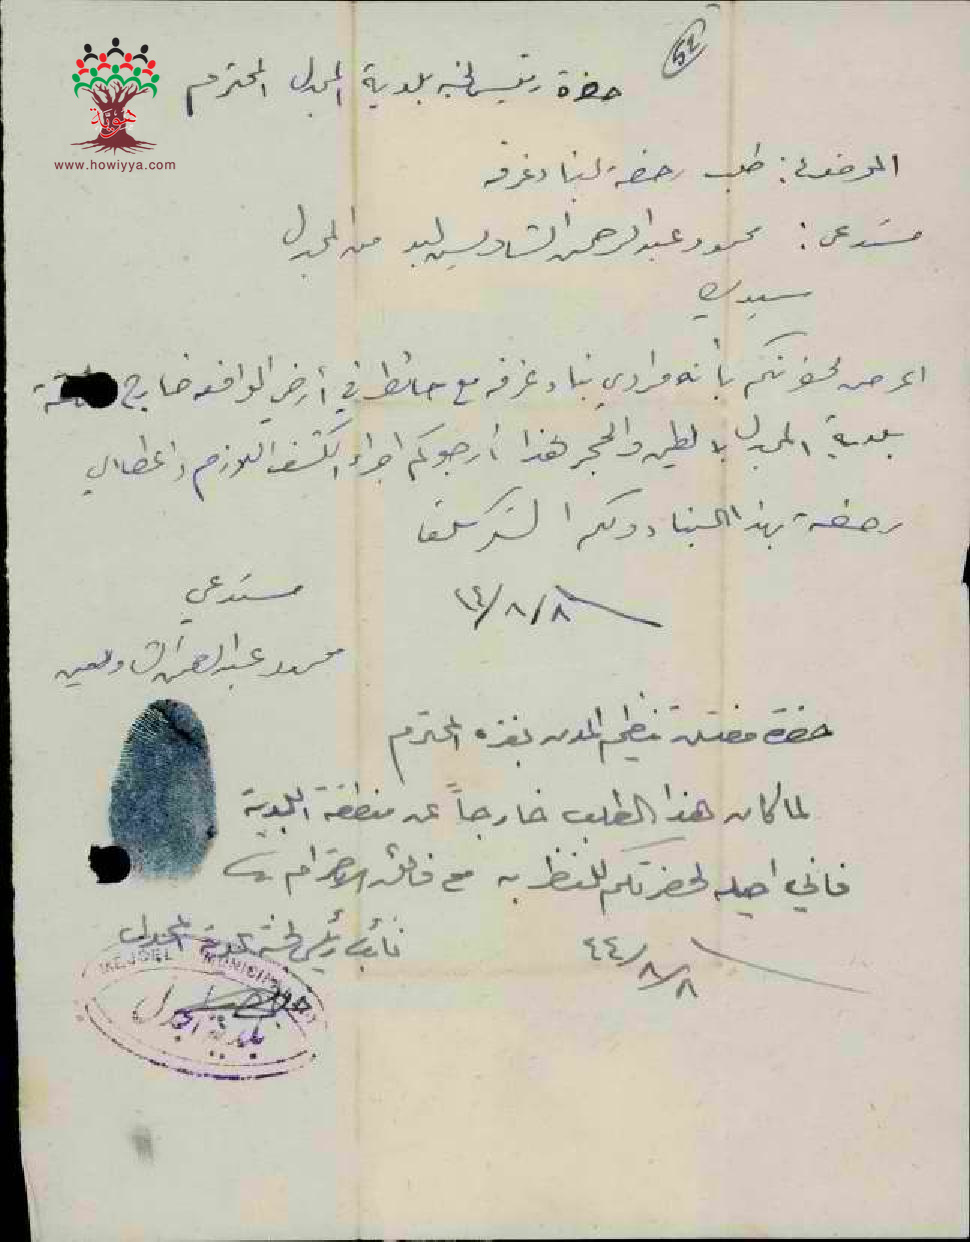 ٥٤
حضرة رئيس لجنة بلدية المجدل المحترم
هوية
www.howiyya.com
الموضوع: طلب رخصة لبناء غرفه
مستدعي: محمود عبد الرحمن الشاويش لبد من المجدل
سيدي
اعرض لحضرتكم بأنه مرادي بناء غرفه مع حائط في أرضي الواقعه خارج
بلدية المجدل بالطين والحجر لهذا أرجوكم اجراء الكشف اللازم واعطائي
رخصة بهذا البناء ولكم الشكر سلفا
٨/٨/٤٤
مستدعي
محمود عبد الرحمن الشاويش
حضرة مفتش تنظيم المدن بغزه المحترم
لما كان هذا الطلب خارجاً عن منطقة البلدية
فاني احيله لحضرتكم للنظر به مع فائق الاحترام
نائب رئيس لجنة بلدية المجدل
٨/٨/٤٤
MEJDEL MUNICIPAL
بلدية المجدل